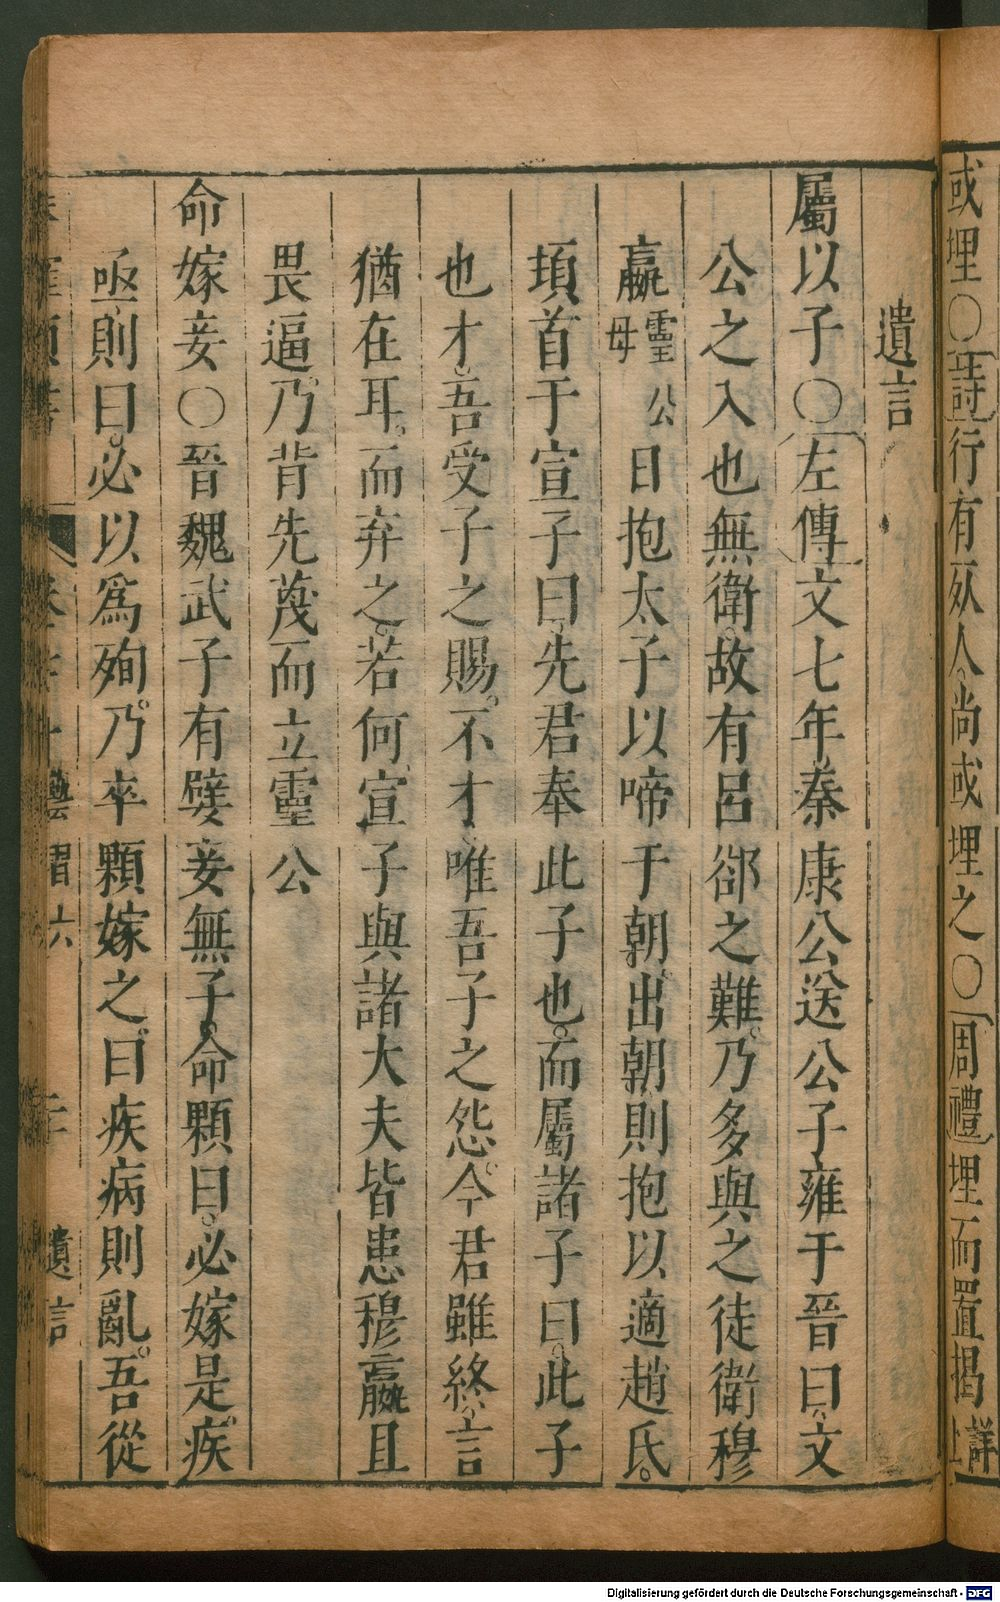 或埋〇詩行有死人尚或埋之〇周禮埋而置揭詳上
遺言
屬以子〇左傳文七年秦康公送公子雍于晉曰文
公之入也無衛故有呂郤之難乃多與之徒衛穆
嬴靈公母日抱太子以啼于朝出朝則抱以適趙氏
頓首于宣子曰先君奉此子也而屬諸子曰此子
也才吾受子之賜不才唯吾子之怨今君雖終言
猶在耳而弃之若何宣子與諸大夫皆患穆嬴且
畏逼乃背先蔑而立靈公
命嫁妾〇晉魏武子有嬖妾無子命顆曰必嫁是疾
亟則曰必以爲殉乃卒顆嫁之曰疾病則亂吾從
遺言
Digitalisierung gefördert durch die Deutsche Forschungsgemeinschaft - DFG